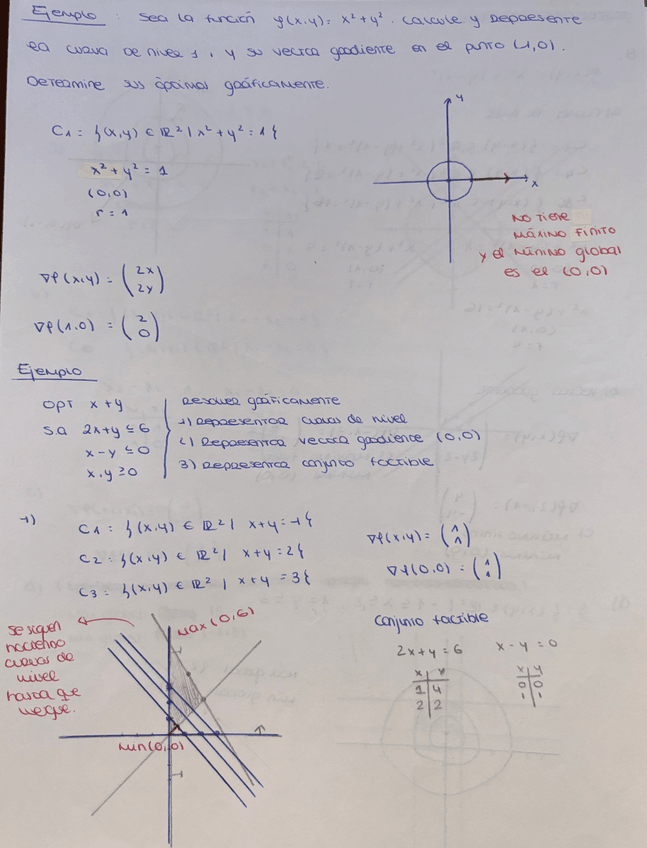 Ejemplo: Sea la función f(x,y) = x² + y². Calcule y represente
la curva de nivel 1, y su vector gradiente en el punto (1,0).
Determine sus óptimos gráficamente.
C1 = {(x,y) ∈ ℝ² | x² + y² = 1}
x² + y² = 1
(0,0)
r = 1
y
x
NO TIENE
MÁXIMO FINITO
y el MÍNIMO global
es el (0,0)
∇f(x,y) = (2x 2y)
∇f(1,0) = (2 0)
Ejemplo
OPT x+y
S.A 2x+y ≤ 6
x-y ≤ 0
x,y ≥ 0
Resolver gráficamente
1) Representar curvas de nivel
2) Representar vector gradiente (0,0)
3) Representar conjunto factible
1)
C1 = {(x,y) ∈ ℝ² | x+y = 1}
C2 = {(x,y) ∈ ℝ² | x+y = 2}
C3 = {(x,y) ∈ ℝ² | x+y = 3}
∇f(x,y) = (1 1)
∇f(0,0) = (1 1)
Se siguen
haciendo
curvas de
nivel
hasta que
llegue.
Max (0,6)
Min (0,0)
Conjunto factible
2x+y = 6
x y
1 4
2 2
x-y = 0
x y
0 0
1 1